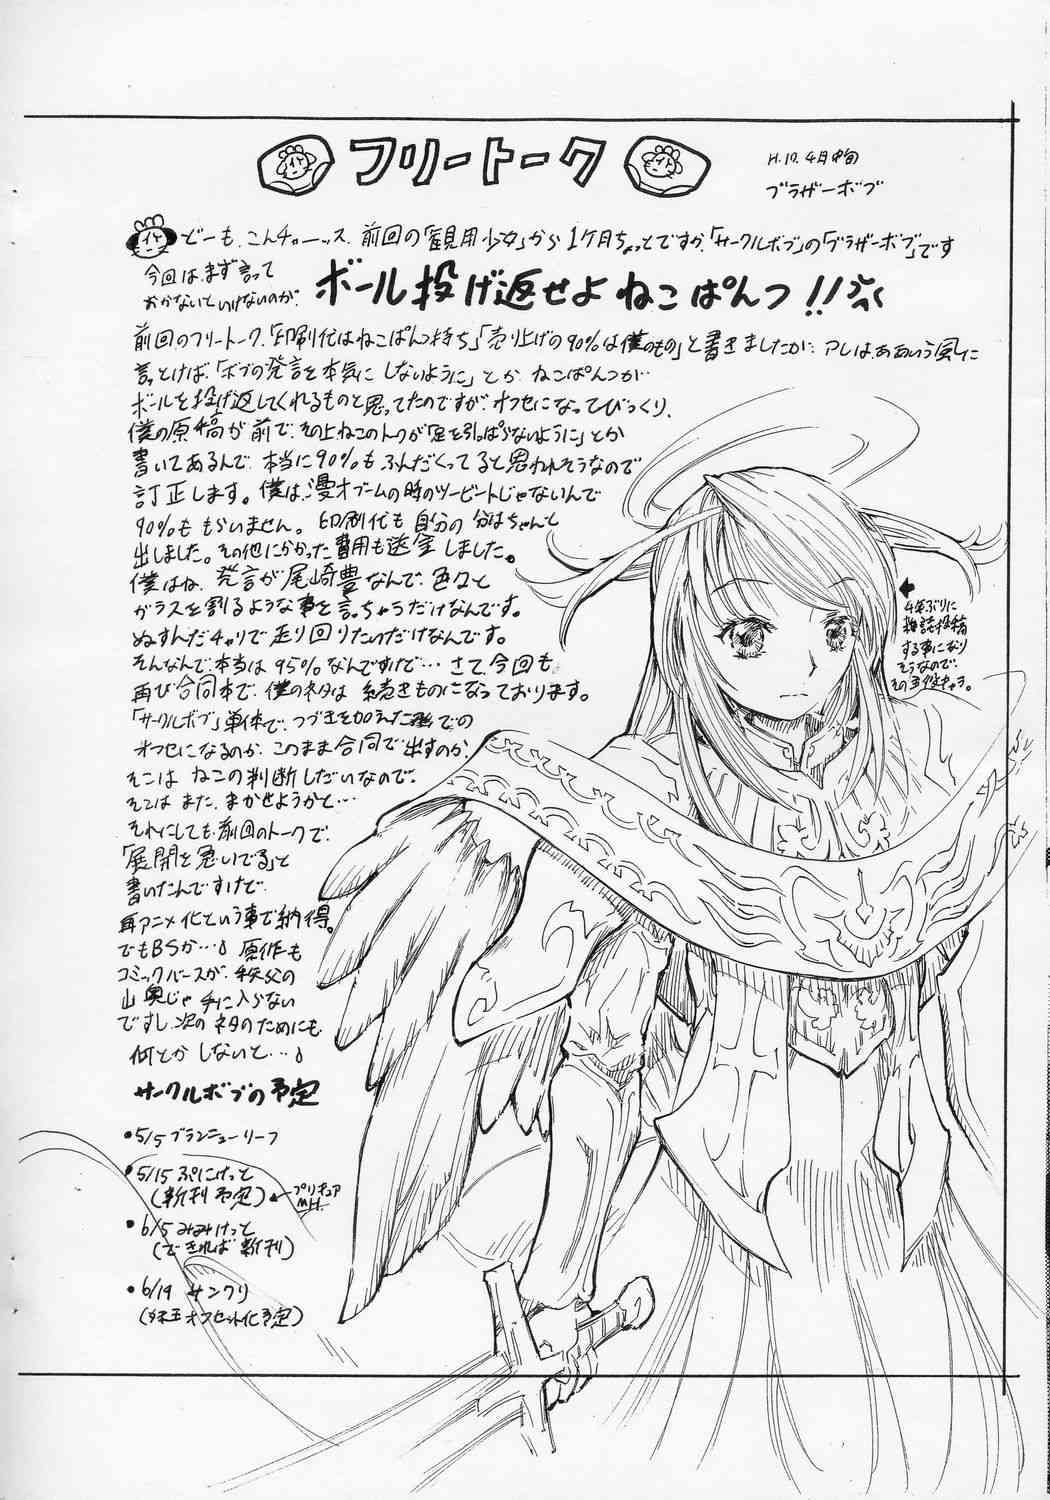 フリートーク
H.17.4月中旬
ブラザーボブ
どーも、こんチァーッス、前回の「観用少女」から1ケ月ちょっとですが、「サークルボブ」の「ブラザーボブ」です
今回は、まず言って
おかないといけないのが、
ボール投げ返せよ ねこぱんつ!!
前回のフリートーク、「印刷代はねこぱんつ持ち」「売り上げの90%は僕のもの」と書きましたが、アレはああいう風に
言っとけば、「ボブの発言を本気にしないように」とか、ねこぱんつが
ボールを投げ返してくれるものと思ってたのですが、オフセになってびっくり、
僕の原稿が前で、その上ねこのトークが「足を引っぱらないように」とか
書いてあるんで、本当に90%もふんだくってると思われそうなので
訂正します。僕は、漫才ブームの時のツービートじゃないんで
90%ももらいません。印刷代も自分の分はちゃんと
出しました。その他にかかった費用も送金しました。
僕はね、発言が尾崎豊なんで、色々と
ガラスを割るような事を言っちゃうだけなんです。
ぬすんだチャリで走り回りたいだけなんです。
そんなんで、本当は95%なんですけど… さて、今回も
再び合同本で、僕のネタは続きものになっております。
「サークルボブ」単体で、つづきを加えた形での
オフセになるのか、このまま合同で出すのか、
そこは ねこの判断しだいなので、
そこは また、まかせようかと…
それにしても、前回のトークで、
「展開を急いでる」と
書いたんですけど、
再アニメ化という事で納得。
でもBSか…♪ 原作も
コミックバースが、秩父の
山奥じゃ手に入らない
ですし、次のネタのためにも
何とかしないと…♪
サークルボブの予定
•5/5 ブランニューリーフ
•5/15 ぷにけっと
(新刊予定)
←プリキュア
MH.
•6/5 みみけっと
(できれば新刊)
•6/19 サンクリ
オフセット化予定)
4年ぶりに
雑誌投稿
する事になり
そうなので、
その主役キャラ。